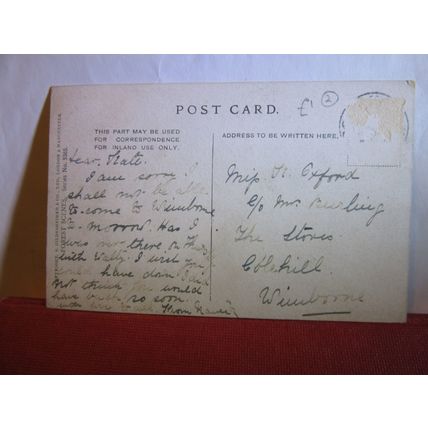 POST CARD.
£1 2
THIS PART MAY BE USED
FOR CORRESPONDENCE
FOR INLAND USE ONLY.
ADDRESS TO BE WRITTEN HERE.
Dear Kate.
I am sorry I
shall not be able
to come to Wimborne
to morrow. Has I
was there on
with I wish you
would have I did
not think you would
have so soon.
FOREST SCENES. Series No. 5365.
Miss K. Oxford
c/o Mrs Burling
The Stores
Colehill.
Wimborne